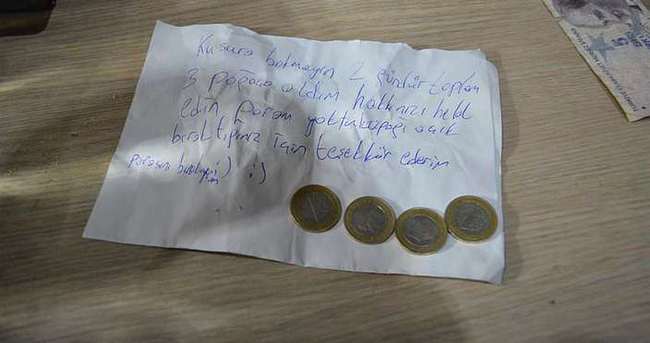 Kusura bakmayın 2 gündür toplam
3 poğaça aldım hakkınızı helal
edin param yoktu kapağı açık
bıraktığınız için teşekkür ederim
:)
5